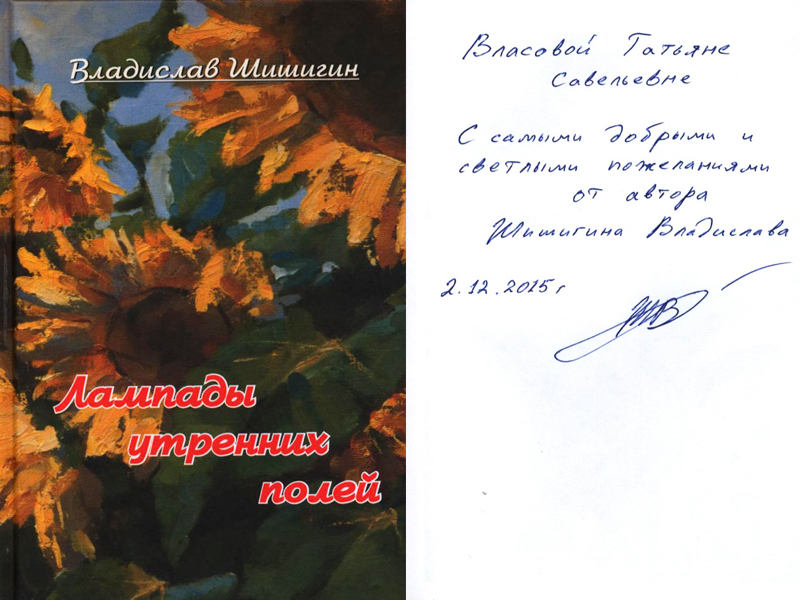 Владислав Шишигин
Лампады
утренних
полей
Власовой Татьяне
Савельевне
С самыми добрыми и
светлыми пожеланиями
от автора
Шишигина Владислава
2.12.2015 г